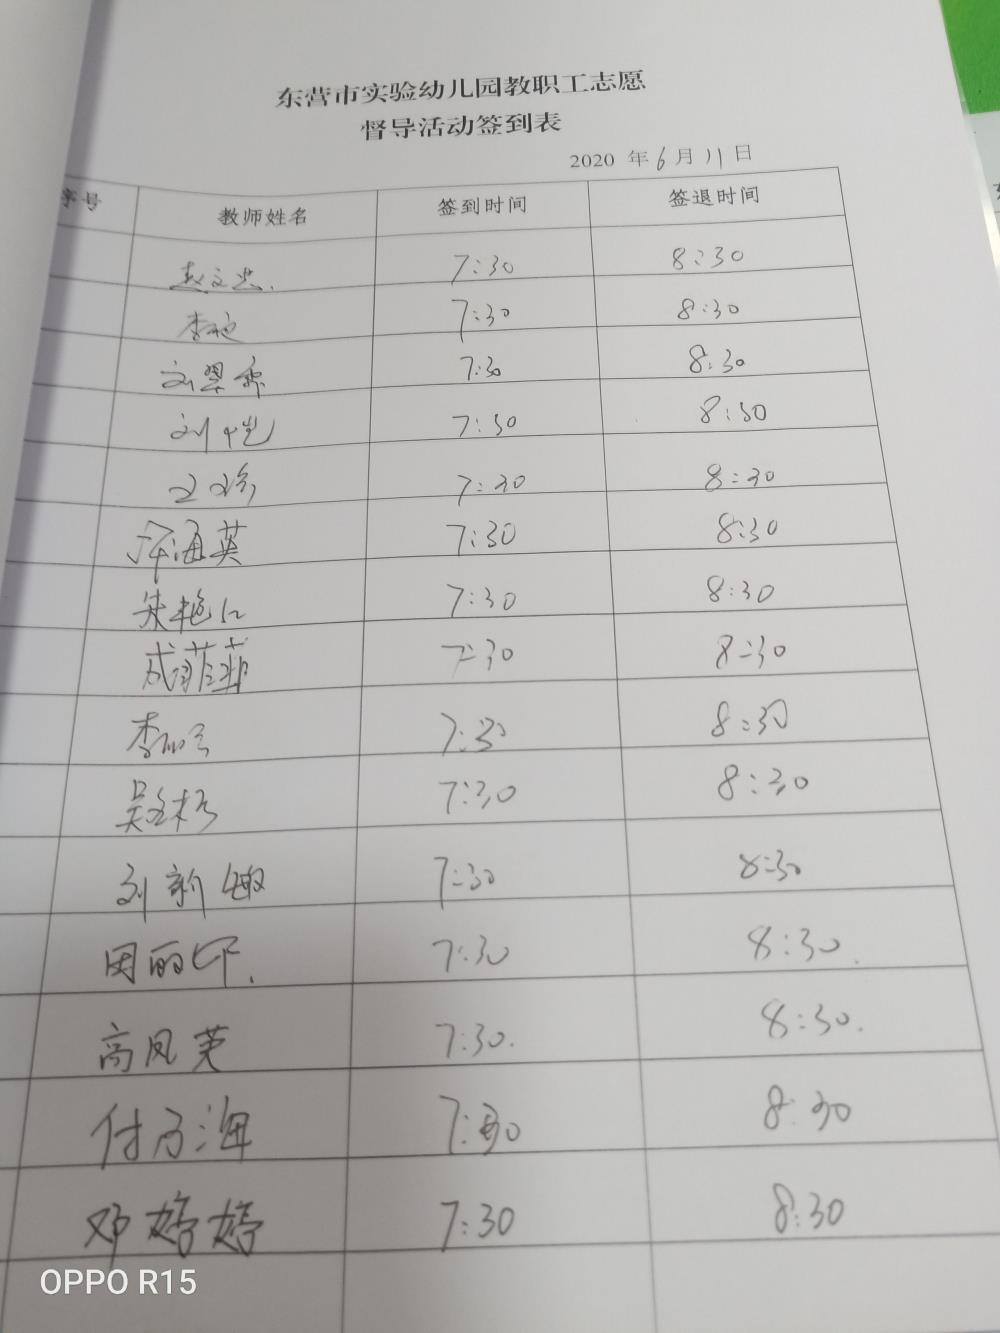 东营市实验幼儿园教职工志愿
督导活动签到表
2020 年 6 月 11 日
序号 教师姓名 签到时间 签退时间
7:30 8:30
7:30 8:30
刘翠 7:30 8:30
刘恺 7:30 8:30
7:30 8:30
海英 7:30 8:30
朱艳 7:30 8:30
成菲菲 7:30 8:30
李 7:30 8:30
吴 7:30 8:30
刘新敏 7:30 8:30
田丽 7:30 8:30.
高凤英 7:30. 8:30.
付乃海 7:30 8:30
邓婷婷 7:30 8:30
OPPO R15